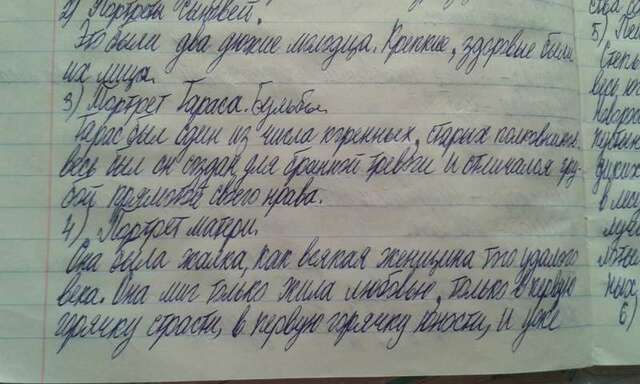 2) Портреты сыновей.
Это были два дюжие молодца. Крепкие, здоровые были
их лица.
3) Портрет Тараса Бульбы.
Тарас был один из числа коренных, старых полковников
весь был он создан для бранной тревоги и отличался гру-
бой прямотой своего нрава.
4) Портрет матери.
Она была жалка, как всякая женщина того удалого
века. Она миг только жила любовью, только в первую
горячку страсти, в первую горячку юности, и уже
ства
5)
Степь
весь
дикиx
в
ных,
6)